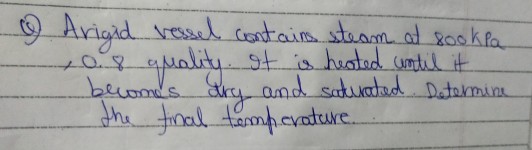 Q Arigid vessel contains steam at 800kPa
, 0.8 quality. It is heated until it
becomes dry and saturated. Determine
the final temperature.